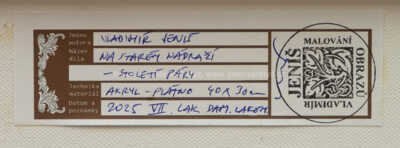 Jméno autora VLADIMÍR JENIŠ
Název díla NA STARÉM NÁDRAŽÍ
– STOLETÍ PÁRY
Technika materiál AKRYL – PLÁTNO 40 x 30 cm
Datum a poznámky 2025 VII. LAK. DAM. LAKEM
MALOVÁNÍ OBRAZŮ
VLADIMÍR
JENIŠ